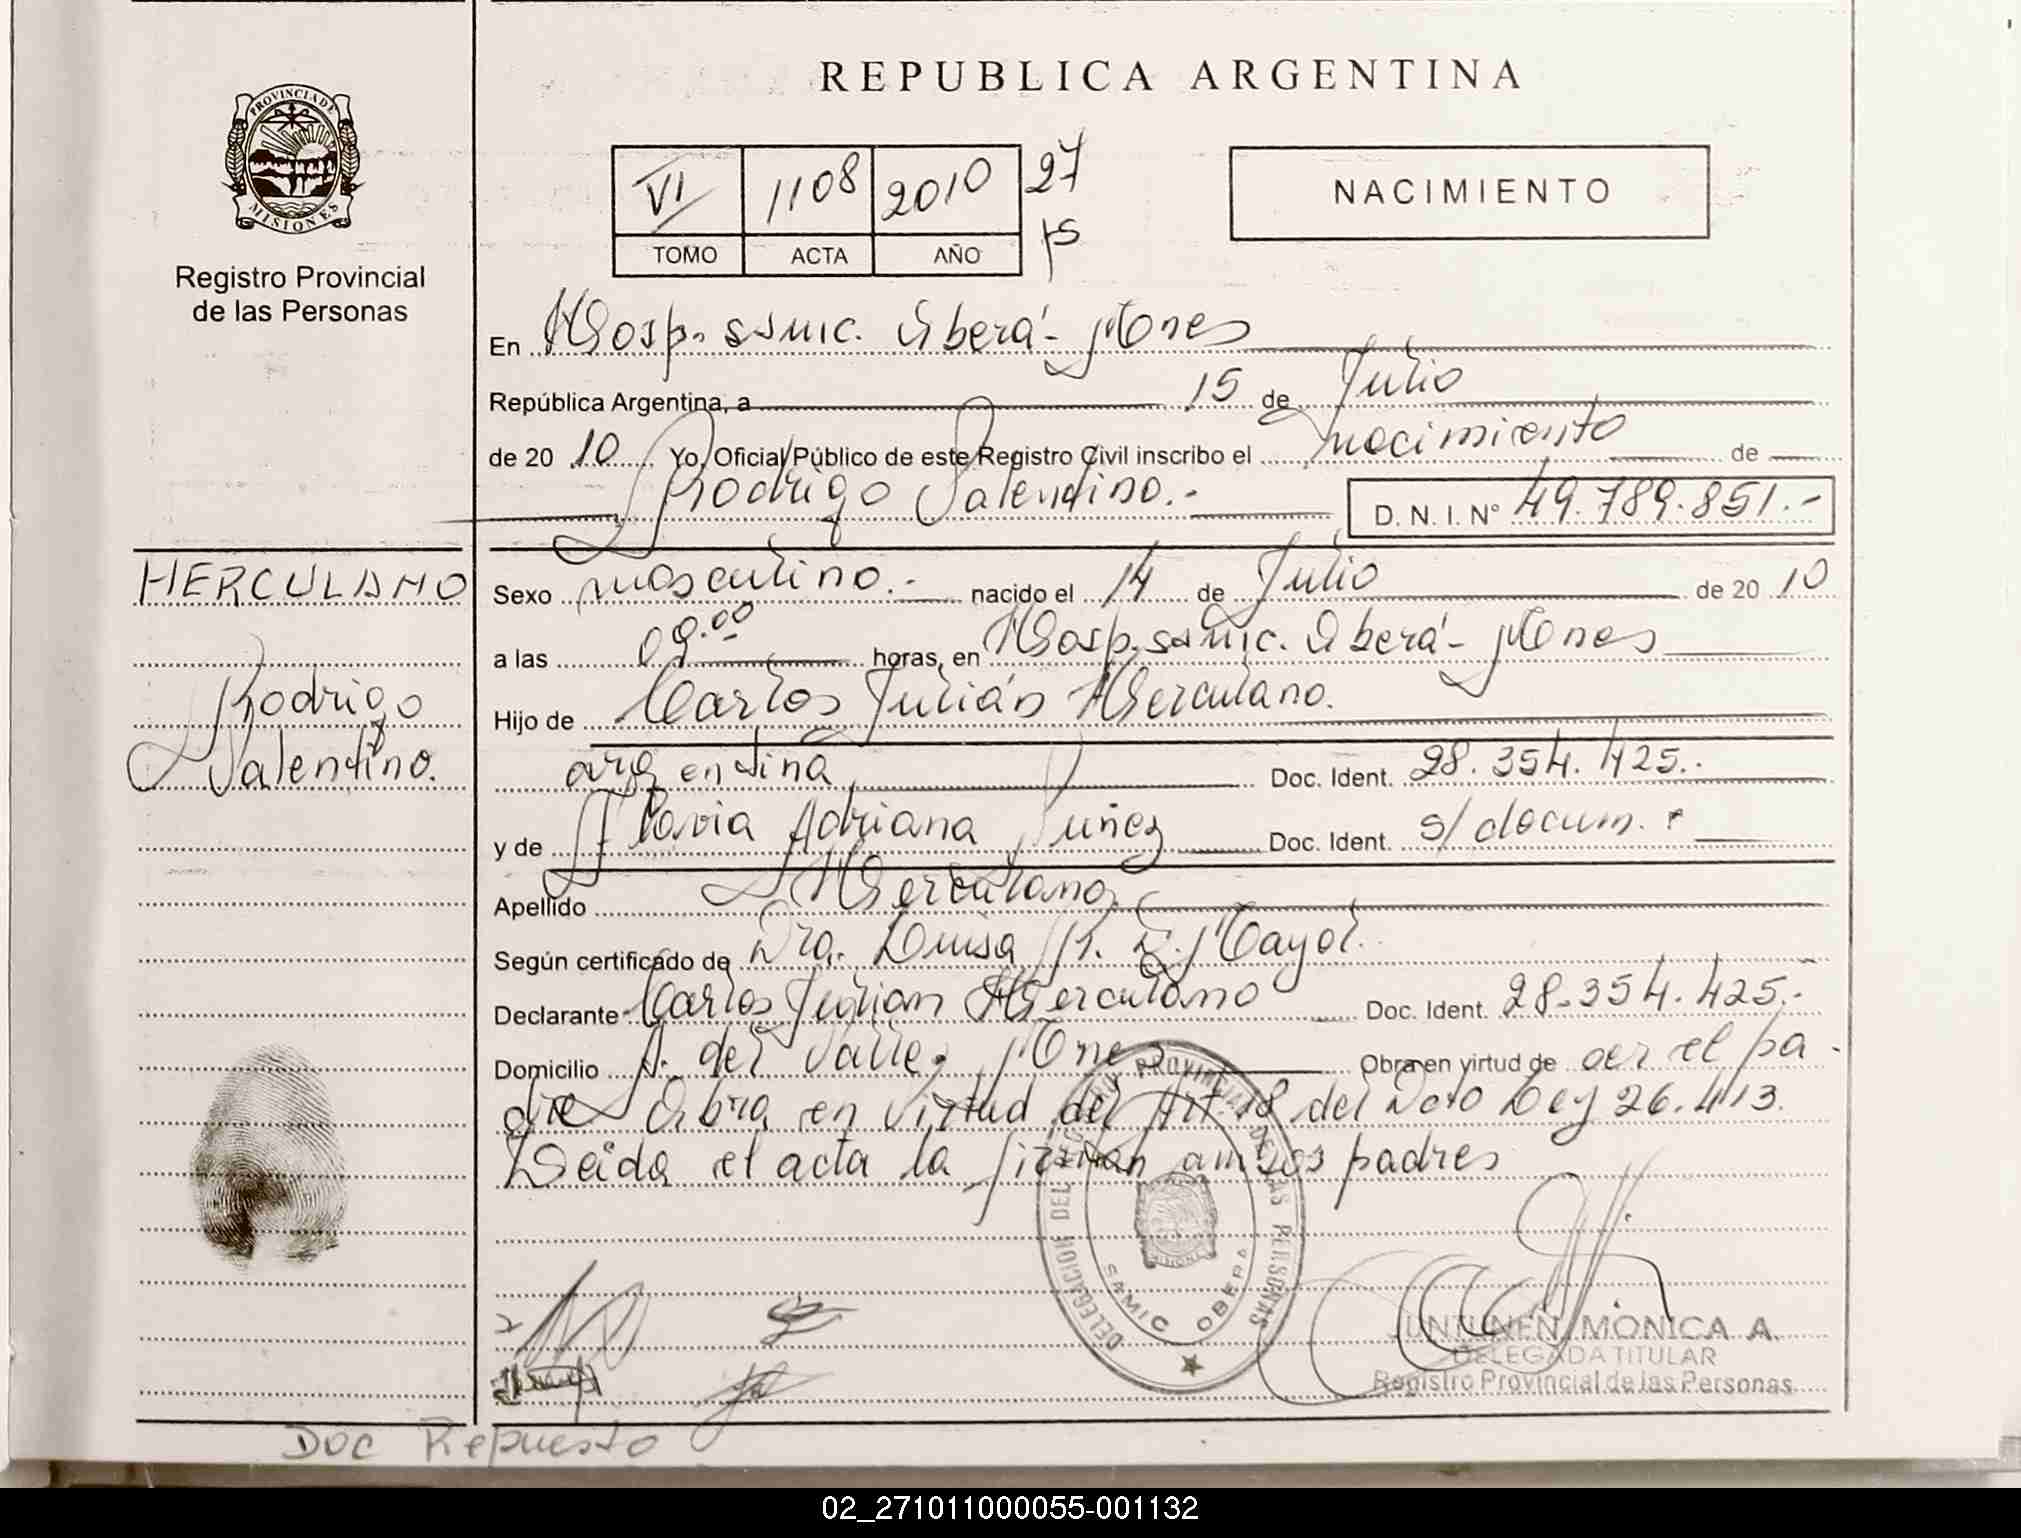 REPUBLICA ARGENTINA
PROVINCIA DE
MISIONES
Registro Provincial
de las Personas
VI 1108 2010 27
TOMO ACTA AÑO
NACIMIENTO
En Hosp. Samic. Oberá - Mones
República Argentina, a 15 de Julio
de 20 10 Yo, Oficial Público de este Registro Civil inscribo el nacimiento de
Rodrigo Valentino.- D. N. I. N° 49.789.851.-
HERCULANO
Rodrigo
Valentino.
Sexo masculino.- nacido el 14 de Julio de 20 10
a las 09.00 horas, en Hosp. Samic. Oberá - Mones
Hijo de Carlos Julián Herculano.
argentina Doc. Ident. 28.354.425.-
y de Flavia Adriana Nuñez Doc. Ident. s/ docum.
Apellido Herculano
Según certificado de Dra. Luisa Mayol.
Declarante Carlos Julian Herculano Doc. Ident. 28.354.425.-
Domicilio A. del Valle, Mnes Obra en virtud de ser el pa-
dre Obra en virtud del Art. 18 del Dcto Ley 26.413.
Leída el acta la firman ambos padres
DELEGACION DEL REGISTRO PROVINCIAL DE LAS PERSONAS
SAMIC OBERA
JUNTUNEN, MONICA A.
DELEGADA TITULAR
Registro Provincial de las Personas
Doc Repuesto
02_271011000055-001132